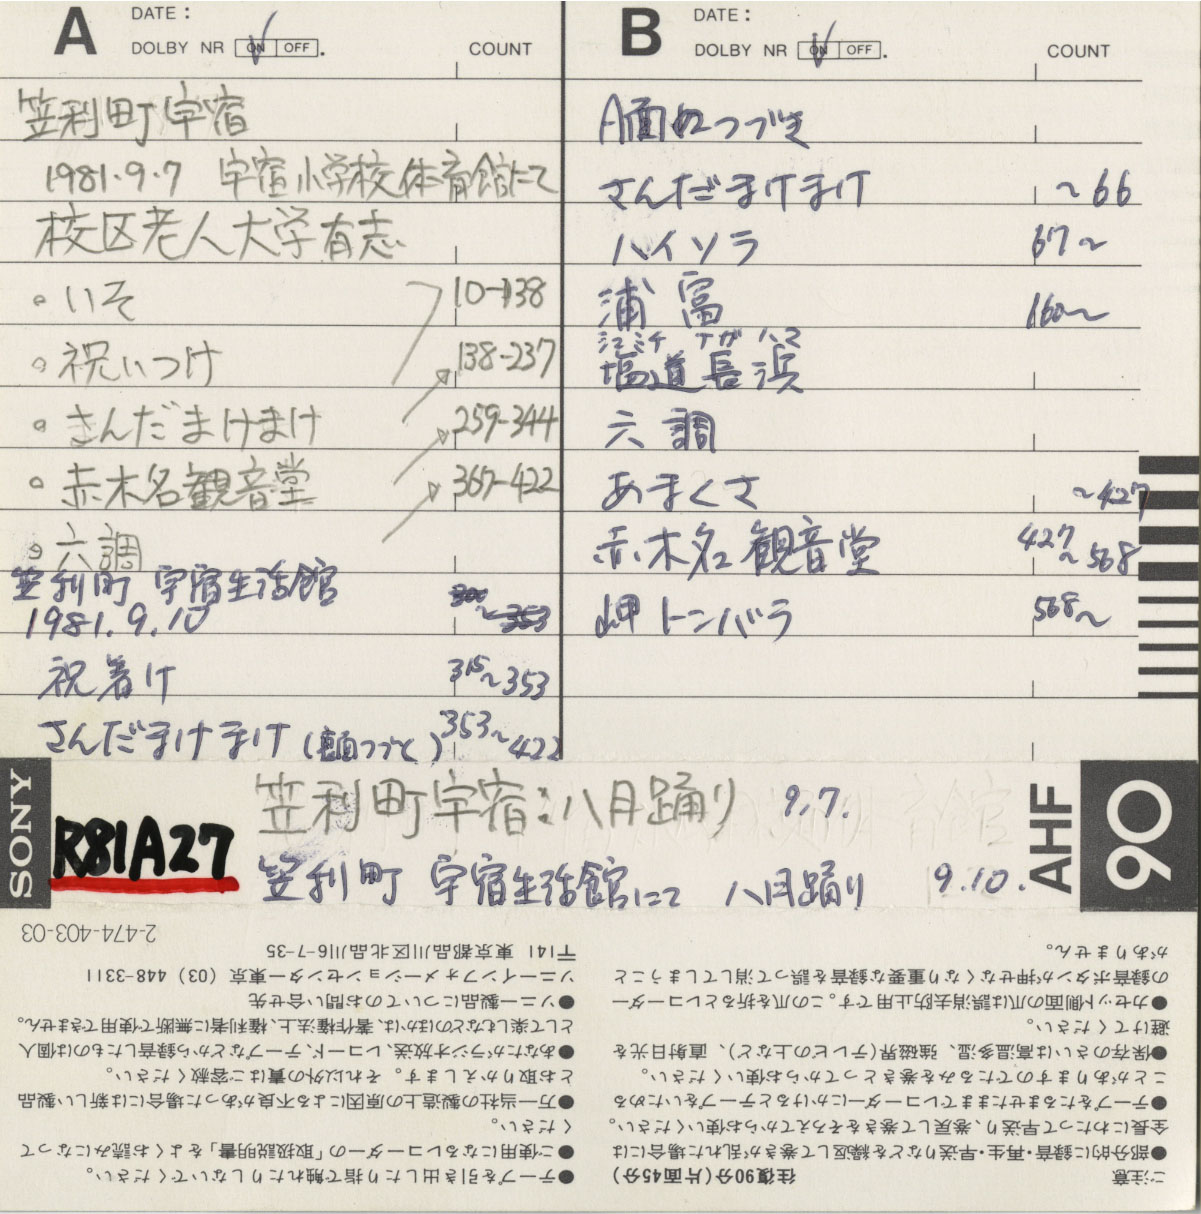 A
DATE:
DOLBY NR ON OFF.
COUNT
笠利町宇宿
1981.9.7 宇宿小学校体育館にて
校区老人大学有志
。いそ 10-138
。祝いつけ 138-237
。さんだまけまけ 259-344
。赤木名観音堂 367-422
。六調
笠利町 宇宿生活館
1981.9.10
祝着け 315~353
さんだまけまけ(裏面つづく) 353~422
B
DATE:
DOLBY NR ON OFF.
COUNT
A面のつづき
さんだまけまけ ~66
ハイソラ 67~
浦富 160~
シュミチ ナガ ハマ
塩道長浜
六調
あまくさ ~427
赤木名観音堂 427~568
岬トンバラ 568~
SONY
R81A27
笠利町宇宿:八月踊り 9.7.
笠利町 宇宿生活館にて 八月踊り 9.10.
AHF
90
ご注意 往復90分(片面45分)
●部分的に録音・再生・早送りなどを繰返して巻きが乱れた場合には
全長にわたって早送り、巻戻して巻きをそろえてからお使いください。
●テープをたるませたままでレコーダーにかけるとテープをいためる
ことがありますのでたるみを巻きとってからお使いください。
●保存のさいは高温多湿、強磁界(テレビの上など)、直射日光を
避けてください。
●カセット側面の爪は誤消去防止用です。この爪を折るとレコーダー
の録音ボタンが押せなくなり重要な録音を誤って消してしまうこと
がありません。
●テープを引き出したり指で触れたりしないでください。
●ご使用になるレコーダーの「取扱説明書」をよくお読みになって
ください。
●万一当社の製造上の原因による不良があった場合には新しい製品
とお取りかえします。それ以外の責はご容赦ください。
●あなたがラジオ放送、レコード、テープなどから録音したものは個人
として楽しむなどのほかは、著作権法上、権利者に無断で使用できません。
●ソニー製品についてのお問い合せ先
ソニーインフォメーションセンター東京 (03) 448-3311
〒141 東京都品川区北品川6-7-35
2-474-403-03